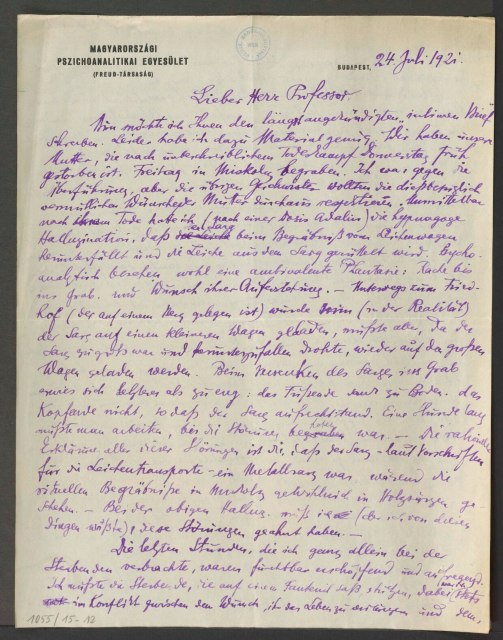 MAGYARORSZÁGI
PSZICHOANALITIKAI EGYESÜLET
(FREUD-TÁRSASÁG)
BUDAPEST, 24. Juli 1921.
Lieber Herr Professor.
Nun möchte ich Ihnen den längst angekündigten „intimen Brief
schreiben. Leider habe ich dazu Material genug. Wir haben unsere
Mutter, die nach unbeschreiblichem Todeskampf Donnerstag früh
gestorben ist, Freitag in Miskolcz begraben. Ich war gegen die
Überführung, aber die übrigen Geschwister wollten die diesbezüglich
vermutlichen Wünsche der Mutter durchaus respektieren. Unmittelbar
nach ihrem Tode habe ich (nach einer Dosis Adalin) die hypnagoge
Hallucination, daß der Sarg beim Begräbniß vom Leichenwagen
herunterfällt und die Leiche aus dem Sarg gerüttelt wird. Psycho-
analytisch besehen wohl eine ambivalente Phantasie: Rache bis
ins Grab. und Wunsch ihrer Auferstehung. — Unterwegs zum Fried-
hof (der auf einem Berg gelegen ist) wurde (in der Realität)
der Sarg auf einen kleineren Wagen geladen, mußte aber, da der
Sarg zu groß war und herunterzufallen drohte, wieder auf den großen
Wagen geladen werden. Beim Versenken des Sarges ins Grab
erwies sich letzteres als zu eng: das Fußende sank zu Boden, das
Kopfende nicht, so daß der Sarg aufrecht stand. Eine Stunde lang
mußte man arbeiten, bis die Störung behoben war. — Die rationelle
Erklärung aller dieser Störungen ist die, daß der Sarg – laut Vorschriften
für die Leichentransporte – ein Metallsarg war, während die
rituellen Begräbnisse in Miskolcz gewöhnlich in Holzsärgen ge-
schehen. — Bei der obigen Halluz. muß ich (der ich von diesen
Dingen wußte) diese Störungen geahnt haben. —
Die letzten Stunden, die ich ganz allein bei der
Sterbenden verbrachte, waren furchtbar erschöpfend und aufregend.
Ich mußte die Sterbende, die auf einem Fauteuil saß, stützen, dabei stets
im Konflikt zwischen dem Wunsch, ihr das Leben zu verlängern und dem,
1055/15-12